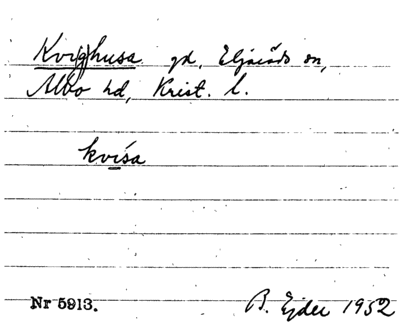 Kvi(g)husa gd, Eljaröds sn,
Albo hd, Krist. l.
kvísa
Nr 5913.
B. Ejder 1952